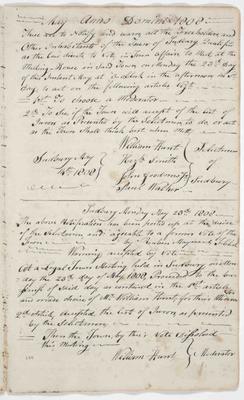 May Anno Domini 1808
These are to Notify and warn all the Freeholders and
Other Inhabitants of the Town of Sudbury Qualified
as the Law directs to Vote in Town Affairs to Meet at the
Meeting House in said Town on Monday the 23d day
of this Instant May at 2 o'clock in the afternoon of sd
day to act on the following articles (viz)
1st To Choose a Moderator
2d To See if the Town will accept of the List of
Jurors as Presented by the Selectmen to do or act
as the Town Shall think best when Met
William Hunt
Selectmen
Sudbury May
Smith
of
1808
John Goodnow Jr
Sudbury
Paul Walker
Sudbury Monday May 23d 1808
The above Notification has been posted up at the desire
of the Selectmen and agreeable to a former Vote of the
Town by Reuben Maynard
Warning certified by
At a Legal Town Meeting held in Sudbury
on the 23d day of May 1808, Proceeded to the
of Said day as contained in the 1st article
and made choice of Mr William Hunt for their Moderator
2d accepted the List of Jurors as presented
by the Selectmen
Then the Town, by their Vote dissolved
this Meeting
William Hunt Moderator